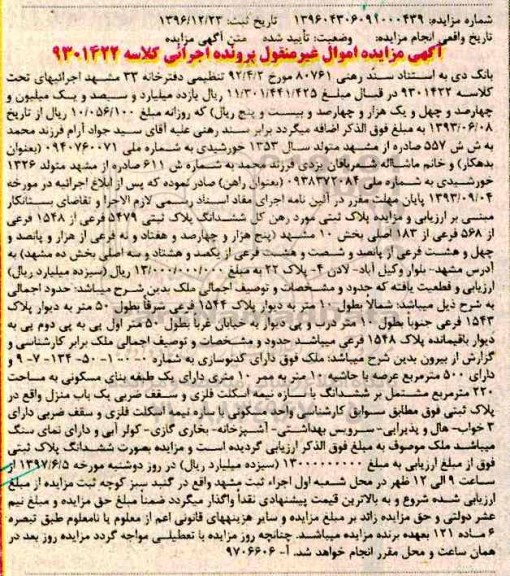 شماره مزایده: ۱۳۹۶۰۴۳۰۶۰۹۲۰۰۰۴۳۹ تاریخ ثبت: ۱۳۹۶/۱۲/۲۳
تاریخ واقعی انجام مزایده: وضعیت: تأیید شده متن آگهی مزایده
آگهی مزایده اموال غیرمنقول پرونده اجرائی کلاسه ۹۳۰۱۴۲۲
بانک دی به استناد سند رهنی ۸۰۷۶۱ مورخ ۹۲/۴/۲ تنظیمی دفترخانه ۳۳ مشهد اجرائیهای تحت
کلاسه ۹۳۰۱۴۲۲ در قبال مبلغ ۱۱/۳۰۱/۴۴۱/۴۲۵ ریال یازده میلیارد و سیصد و یک میلیون و
چهارصد و چهل و یک هزار و چهارصد و بیست و پنج ریال) که روزانه مبلغ ۱۰/۰۵۶/۱۰۰ ریال از تاریخ
۱۳۹۳/۰۶/۰۸ به مبلغ فوق الذکر اضافه میگردد برابر سند رهنی علیه آقای سید جواد آرام فرزند محمد
به ش ش ۵۵۷ صادره از مشهد متولد سال ۱۳۵۳ خورشیدی به شماره ملی ۰۹۴۰۷۶۰۰۷۱ (بعنوان
بدهکار) و خانم ماشااله شعربافان یزدی فرزند محمد به شماره ش ۶۱۱ صادره از مشهد متولد ۱۳۲۶
خورشیدی به شماره ملی ۰۹۳۸۳۷۲۰۸۴ (بعنوان راهن) صادر نموده که پس از ابلاغ اجرائیه در مورخه
۱۳۹۳/۰۹/۰۴ پایان مهلت مقرر در آئین نامه اجرای مفاد اسناد رسمی لازم الاجرا و تقاضای بستانکار
مبتنی بر ارزیابی و مزایده پلاک ثبتی مورد رهن کل ششدانگ پلاک ثبتی ۵۴۷۹ فرعی از ۱۵۴۸ فرعی
از ۵۶۸ فرعی از ۱۸۳ اصلی بخش ۱۰ مشهد (پنج هزار و چهارصد و هفتاد و نه فرعی از هزار و پانصد و
چهل و هشت فرعی از پانصد و شصت و هشت فرعی از یکصد و هشتاد و سه اصلی بخش ده مشهد) به
آدرس مشهد- بلوار وکیل آباد- لادن ۴- پلاک ۲۲ به مبلغ ۱۳/۰۰۰/۰۰۰/۰۰۰ ریال (سیزده میلیارد ریال)
ارزیابی و قطعیت یافته که حدود و مشخصات و توصیف اجمالی ملک بدین شرح میباشد: حدود اجمالی
به شرح ذیل میباشد: شمالاً بطول ۱۰ متر به دیوار پلاک ۱۵۴۴ فرعی شرقاً بطول ۵۰ متر به دیوار پلاک
۱۵۴۳ فرعی جنوبا بطول ۱۰ متر درب و پی دیوار به خیابان غربا بطول ۵۰ متر اول پی به پی دوم پی به
دیوار باقیمانده پلاک ۱۵۴۸ فرعی میباشد حدود و مشخصات و توصیف اجمالی ملک برابر کارشناسی و
گزارش از بیرون بدین شرح میباشد: ملک فوق دارای کدنوسازی به شماره ۰-۰-۰-۱-۵۰-۱۳۴-۷-۹ و
دارای ۵۰۰ مترمربع عرصه با حاشیه ۱۰ متر به ممر ۱۰ متری دارای یک طبقه بنای مسکونی به مساحت
۲۲۰ مترمربع مشتمل بر ششدانگ با سازه نیمه اسکلت فلزی و سقف ضربی یک باب منزل واقع در
پلاک ثبتی فوق مطابق سوابق کارشناسی واحد مسکونی با سازه نیمه اسکلت فلزی و سقف ضربی دارای
۳ خواب- هال و پذیرایی- سرویس بهداشتی- آشپزخانه- بخاری گازی- کولر آبی و دارای نمای سنگ
میباشد ملک موصوف به مبلغ فوق الذکر ارزیابی گردیده است و مزایده بصورت ششدانگ پلاک ثبتی
فوق از مبلغ ارزیابی به مبلغ ۱۳۰۰۰۰۰۰۰۰۰ (سیزده میلیارد ریال) در روز دوشنبه مورخه ۱۳۹۷/۶/۵ از
ساعت ۹ الی ۱۲ ظهر در محل شعبه اول اجراء ثبت مشهد واقع در گنبد سبز کوچه ثبت مزایده از مبلغ
ارزیابی شده شروع و به بالاترین قیمت پیشنهادی نقداً واگذار میگردد ضمناً مبلغ حق مزایده و مبلغ نیم
عشر دولتی و حق مزایده زائد بر مبلغ مزایده و سایر هزینههای قانونی اعم از معلوم یا نامعلوم طبق تبصره
۶ ماده ۱۲۱ بعهده برنده مزایده میباشد. چنانچه روز مزایده با تعطیلی مواجه گردد مزایده روز بعد در
همان ساعت و محل مقرر انجام خواهد شد. آ- ۹۷۰۶۶۰۶